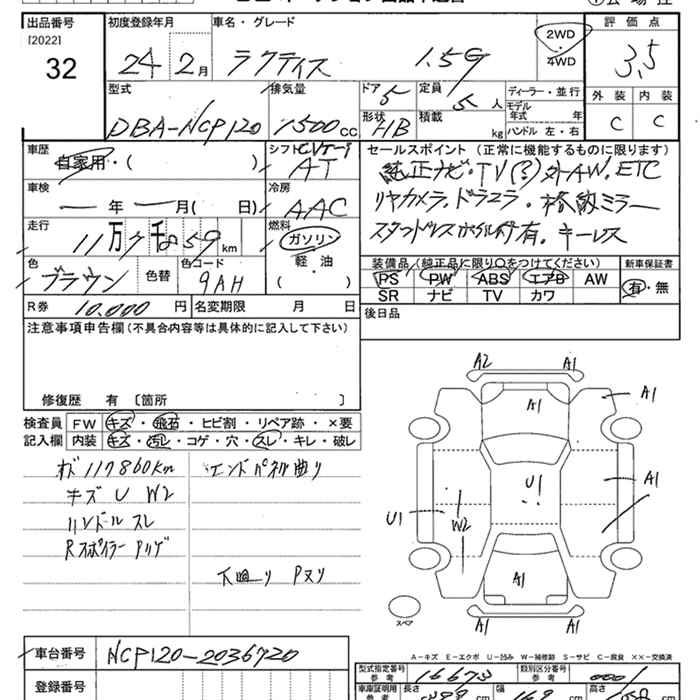 出品番号 初度登録年月 車名・グレード 評価点
[2022]
32
24年2月 ラクティス 1.5G 2WD 4WD 3.5
型式 排気量 ドア 5 定員 5人 ディーラー・並行
外装 内装
モデル年式 年
DBA-NCP120 1500cc 形状 HB 積載 kg ハンドル 左・右 C C
車歴 シフト CVT セールスポイント (正常に機能するものに限ります)
自家用・( ) AT 純正ナビ・TV(?)外AW.ETC
車検 冷房 リヤカメラ.ドラエラ・格納ミラー
ー年ー月(日) AAC
走行 燃料 スタッドレスホイル付有.キーレス
11万7千859km ガソリン
軽・油
( )
色 色替 色コード 装備品(純正品に限り○をつけてください) 新車保証書
ブラウン 9AH PS PW ABS エアB AW 有・無
SR ナビ TV カワ
R券 10.000円 名変期限 月 日
後日品
注意事項申告欄(不具合内容等は具体的に記入して下さい)
修復歴 有 〔箇所 〕
検査員 FW キズ・飛石・ヒビ割・リペア跡・×要
記入欄 内装 キズ・汚レ・コゲ・穴・スレ・キレ・破レ
オド117860km エンドパネル曲り
キズ U W2
ハンドル スレ
Rスポイラー Pハゲ
下廻り Pヌリ
A2 A1
A1 A1
U1 A1
U1 W2
A1
A1 A1
スペア
A-キズ E-エクボ U-凹み W-補修跡 S-サビ C-腐食 ××-交換済
車台番号 NCP120-2036720
型式指定番号 参考 16673 類別区分番号 参考 0001
登録番号 車庫証明用 参考 長さ cm 幅 168 cm 高さ cm